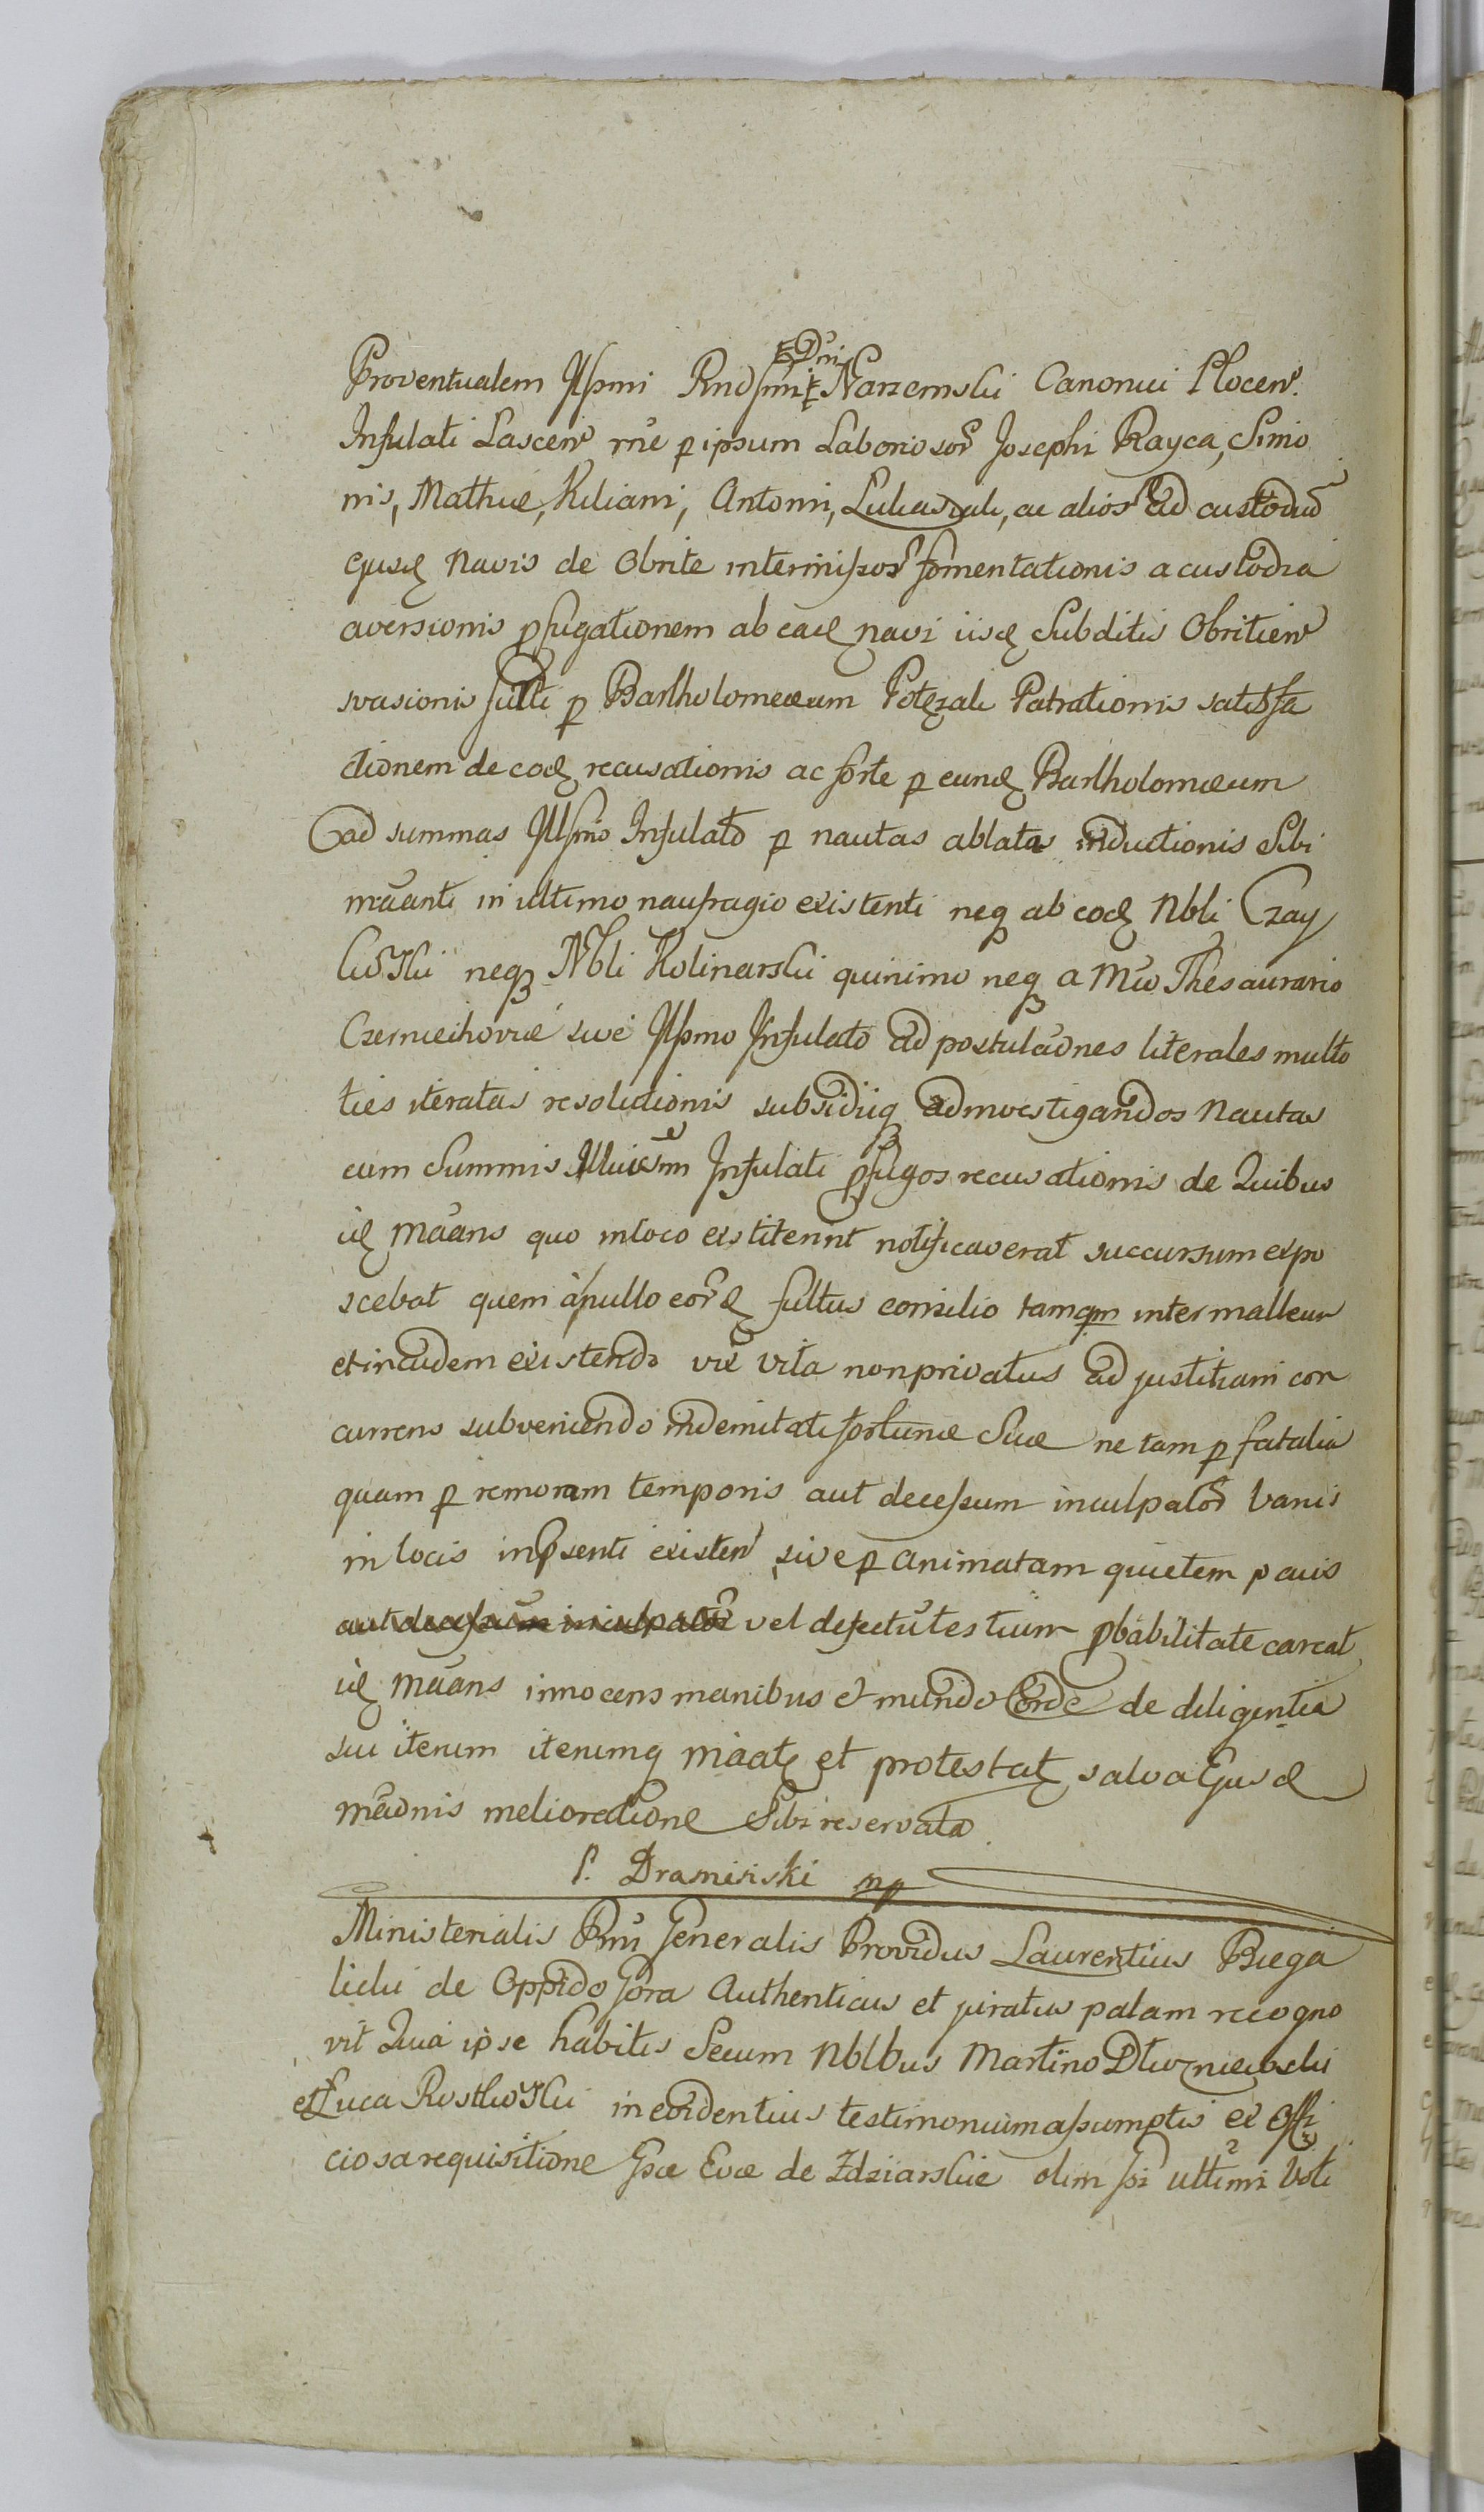 Proventualem Illsmi Rndssmi D̃ni Narzemski Canonici Plocen̄.
Infulati Lascen̄ rñe p ipsum Laboriosor̃ Josephi Rayca, Simo
nis, Mathiæ, Kiliani, Antonii, Lukasiak, ac alior̃ ad custodiã
ejusd̨ Navis de Obrite intermissor̃ fomentationis a custodia
aversionis pfugationem ab ead̨ navi iisd̨ Subditis Obritien̄
svasionis p Bartholomeæum Potęzak Patrationis satisfa
ctionem de eod̨ recusationis ac forte p eund̨ Bartholomæum
ad summas Illsmo Infulato p nautas ablatas inductionis Sibi
mãnti in ultimo naufragio existenti neq ab eod̨ Nbli Czay
kowski neq Nbli Kolinarski quinimo neq a Mco Thesaurario
Czerniechoviæ sive Illsmo Infulato ad postulãones literales multo
ties iteratas resolutionis subsidiiq ad investigandos Nautas
cum Summis Infulati pfugos recusationis de Quibus
id̨ Mãans quo in loco exstiterint notificaverat succursum expo
scebat quem à nullo eor̃d̨ fultus consilio tamqm inter malleum
et incudem existendo vix vita non privatus ad justitiam con
currens subveniendo indemnitati fortunæ Suæ ne tam p fatalia
quam p remoram temporis aut decessum inculpator̃ Variis
in locis in p̃senti existen̄ sive p animatam quietem pavis
aut decessum inculpator̃ vel defectũ testium p̃babilitate careat
id̨ Mãans innocens manibus et mundo Corde de diligentia
sui iterum iterumq mãat̨ et protestat̨ salva Ejusd
mãonis melioratione Sibi reservata.
P. Dramiński mp
Ministerialis Rñi Generalis Providus Laurentius Biega
licki de Oppido Gora Authenticus et juratus palam recogno
vit Quia ipse habitis Secum Nblbus Martino Dłuzniewski
et Luca Rostkowski in evidentius testimonium assumptis ex Offi
ciosa requisitione Gsæ Evæ de Zdziarskie olim Gsi ultimi Voti